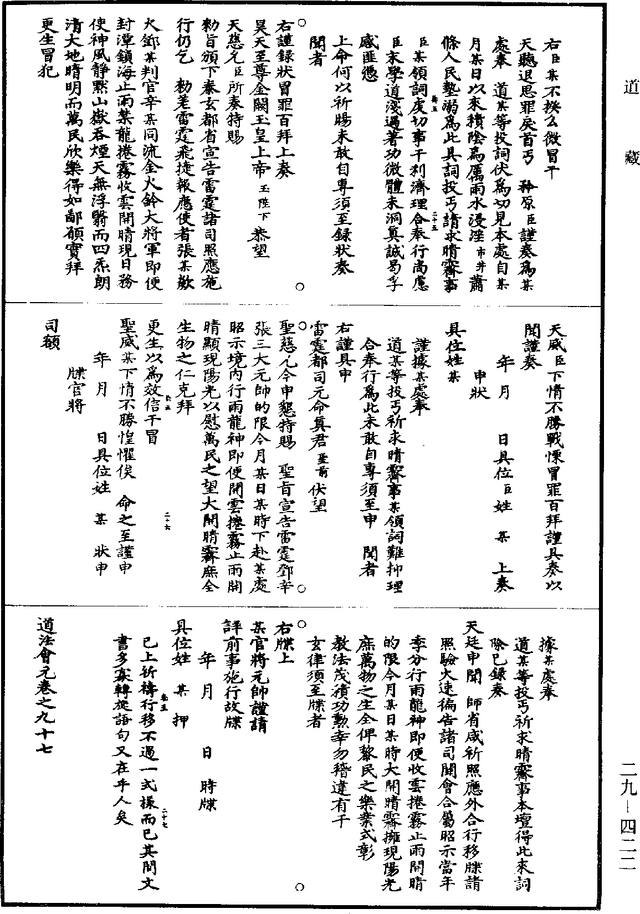 道藏
右臣某不揆么微冒干
天聽退思罪戾首丐　矜原臣謹奏為某
處奉　道某等投詞伏為切見本處自某
月某日以來積陰為厲雨水浸淫市井蕭
條人民墊溺為此具詞投丐請求晴霽事
臣某領詞虔切事干利濟理合奉行尚慮
臣末學道淺過著功微體未洞真誠曷孚
感匪憑
上命何以祈賜未敢自專須至錄狀奏
聞者
右謹錄狀冒罪百拜上奏
昊天至尊金闕玉皇上帝玉陛下恭望
天慈允臣所奏特賜
勑旨頒下泰玄都省宣告雷霆諸司照應施
行仍乞　勑差雷霆飛捷報應使者張某歘
火鄧某判官辛某同流金火鈴大將軍即便
封潭鎖海止雨禁龍捲霧收雲開晴現日務
使神風静默山嶽吞煙天無浮翳而四炁朗
清大地晴明而萬民欣樂得如鄙願實拜
更生冒犯
天威臣下情不勝戰慄冒罪百拜謹具奏以
聞謹奏
年　月　日具位臣姓　某　上奏
申狀
具位姓某
謹據某處奉
道某等投丐祈求晴霽事某領詞難抑理
合奉行為此未敢自專須至申　聞者
右謹具申
雷霆都司元命真君聖前伏望
聖慈允今申懇特賜　聖旨宣告雷霆鄧辛
張三大元帥的限今月某日某時下赴某處
昭示境内行雨龍神即便開雲捲霧止雨開
晴顯現陽光以慰萬民之望大開晴霽庶全
生物之仁克拜
更生以為效信干冒
聖威某下情不勝惶懼俟　命之至謹申
年　月　日具位姓　某　狀申
牒官將
司額
據某處奉
道某等投丐祈求晴霽事本壇得此來詞
除已錄奏
天廷申聞　師省咸祈照應外合行移牒請
照驗火速徧告諸司關會合屬昭示當年
季分行雨龍神即便收雲捲霧止雨開晴
的限今月某日某時大開晴霽擁現陽光
庶萬物之生全俾黎民之樂業式彰
教法茂積功勲幸勿稽違有干
玄律須至牒者
右牒上
某官將元帥謹請
詳前事施行故牒
年　月　日　時牒
具位姓　某　押
已上祈禱行移不過一式樣而已其間文
書多寡轉旋語句又在乎人矣
道法會元卷之九十七
二九—四二二